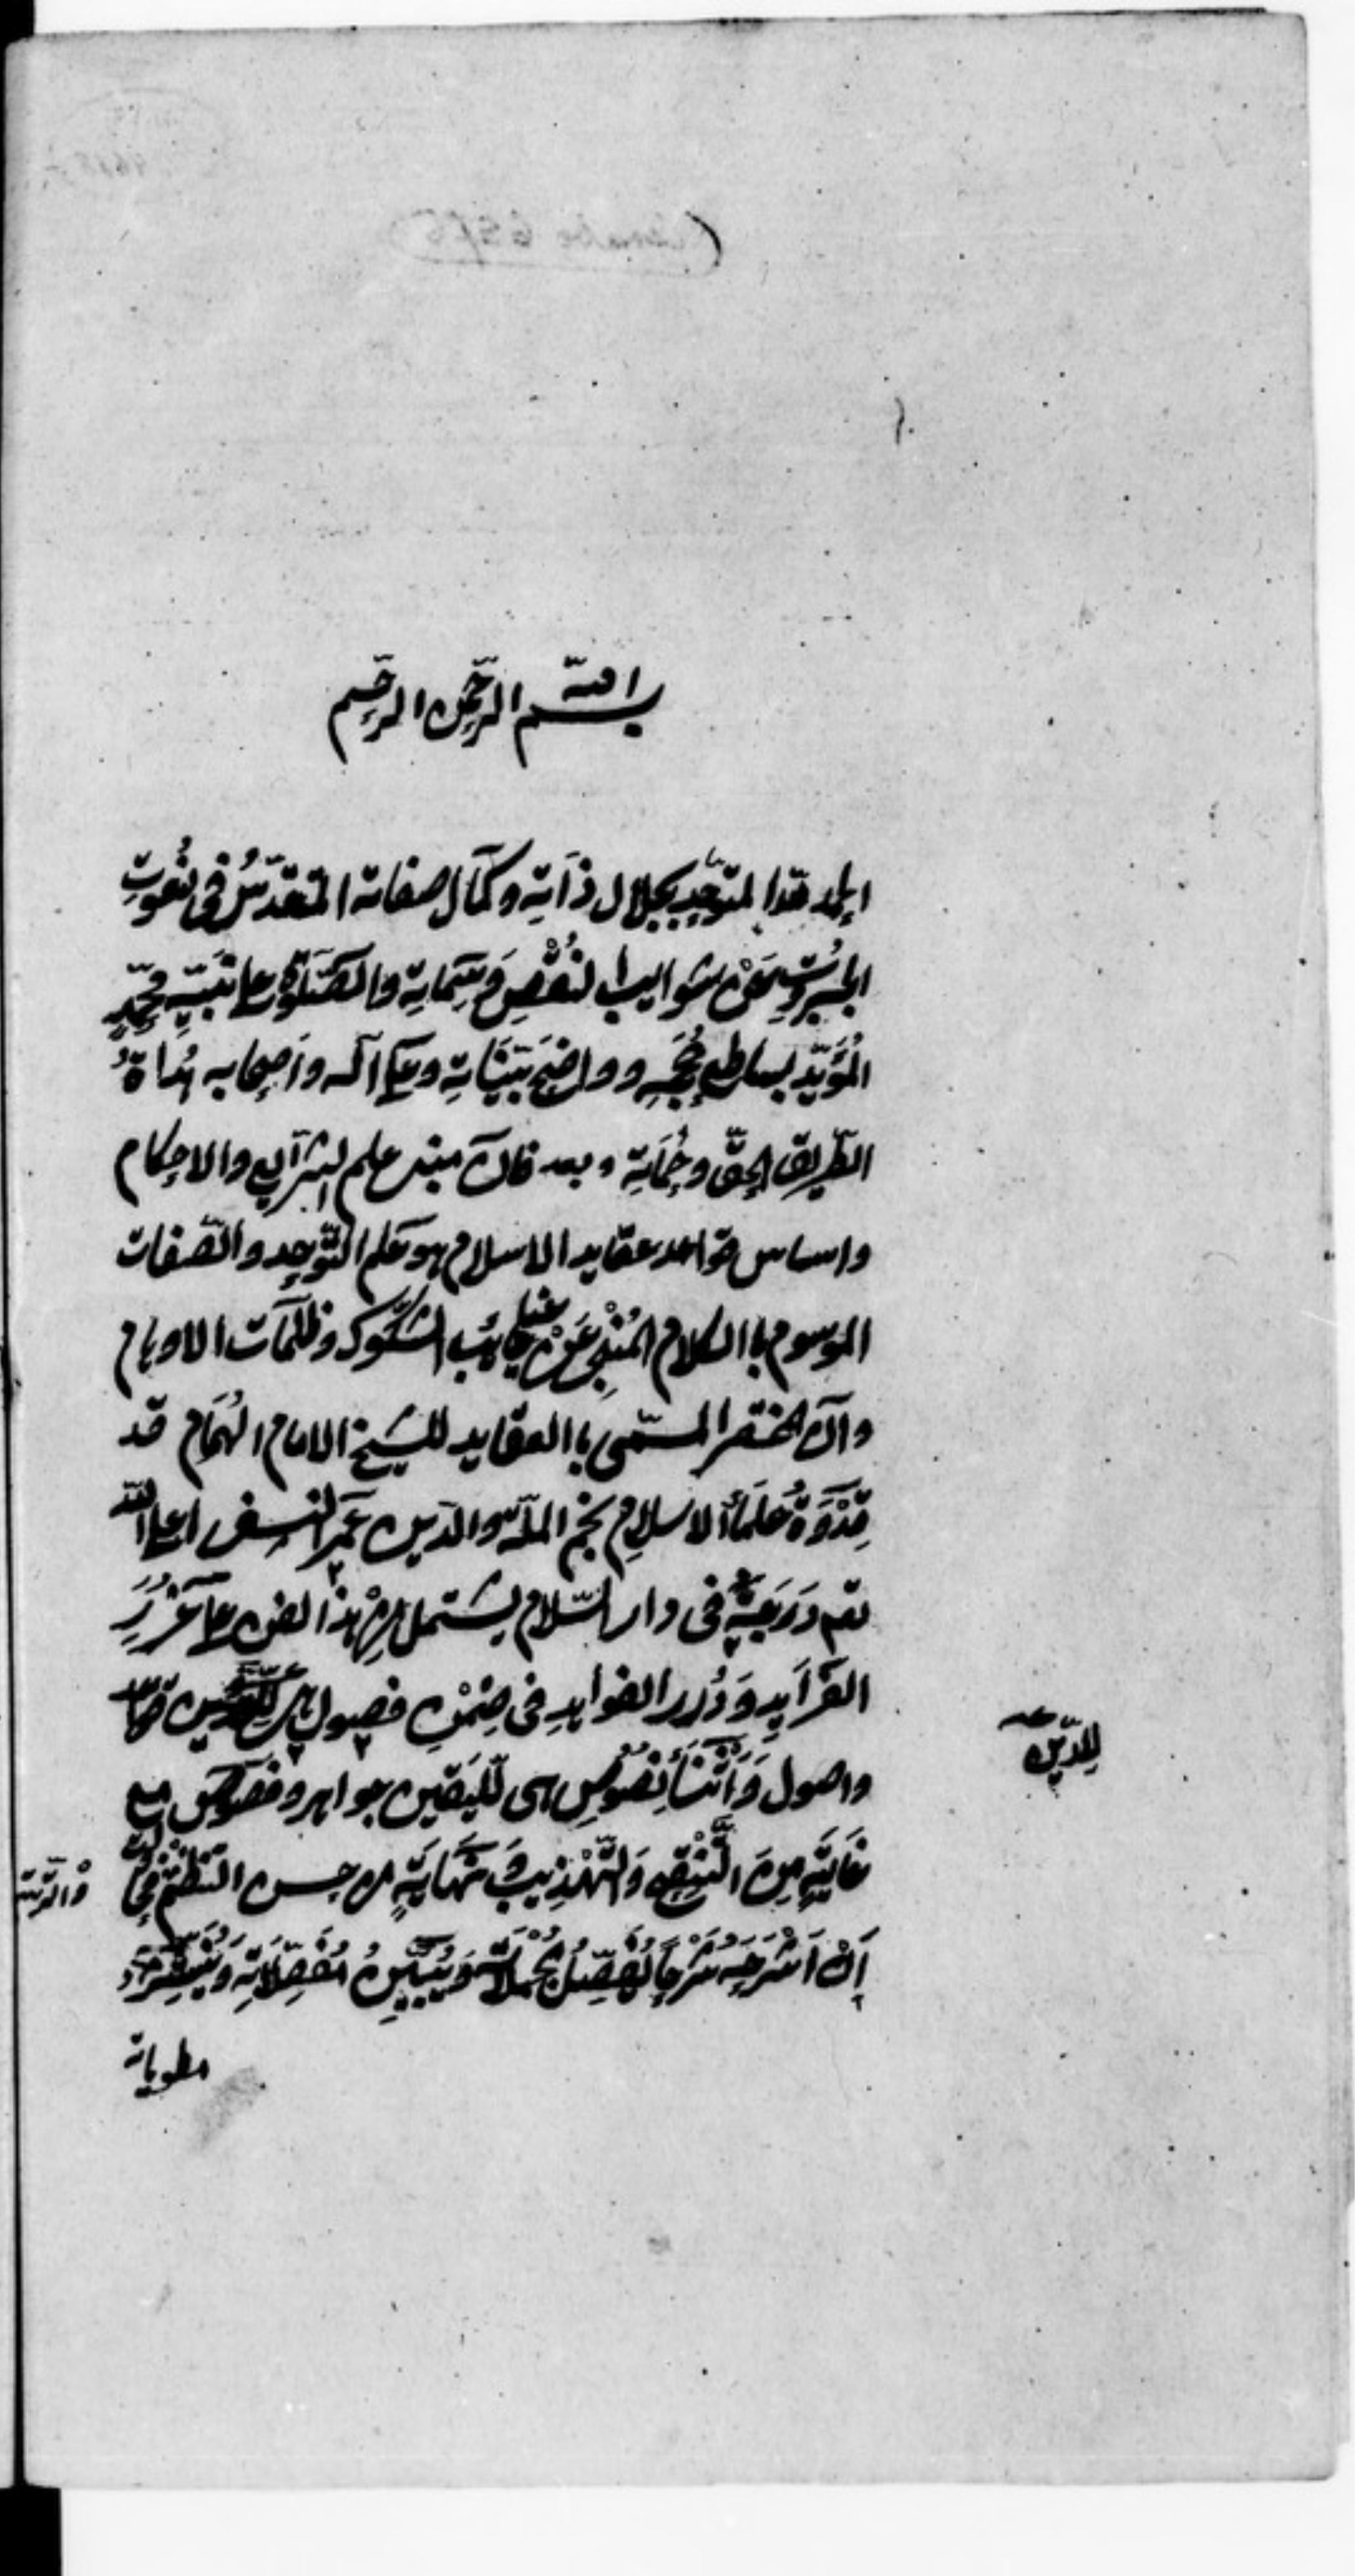 بسم الله الرحمن الرحيم
الحمد لله المتوحد بجلال ذاته وكمال صفاته المتقدس في نعوت
الجبروت عن شوايب النقص وسماته والصلوة على نبيه محمد
المؤيد بساطع حججه وواضح بيناته وعلى آله واصحابه هداة
الطريق الحق وحماته وبعد فان مبنى علم الشرايع والاحكام
واساس قواعد عقايد الاسلام هو علم التوحيد والصفات
الموسوم باالكلام المنجى عن غياهب الشكوك وظلمات الاوهام
وان المختصر المسمى باالعقايد للشيخ الامام الهمام قد
قدوة علماء الاسلام نجم الملة والدين عمر النسفى اعلى الله
تع درجته فى دار السلام يشتمل من هذا الفن على غرر
الفرايد ودرر الفوايد فى ضمن فصول هى للدين قواعد
للدين
واصول واثناء نصوص هى لليقين جواهر وفصوص مع
غاية من التنقيح والتهذيب ونهاية من حسن التنظيم
والترتيب
ان اشرحه شرحا يفصل مجملاته ويبين مفصلاته وينشر
مطوياته